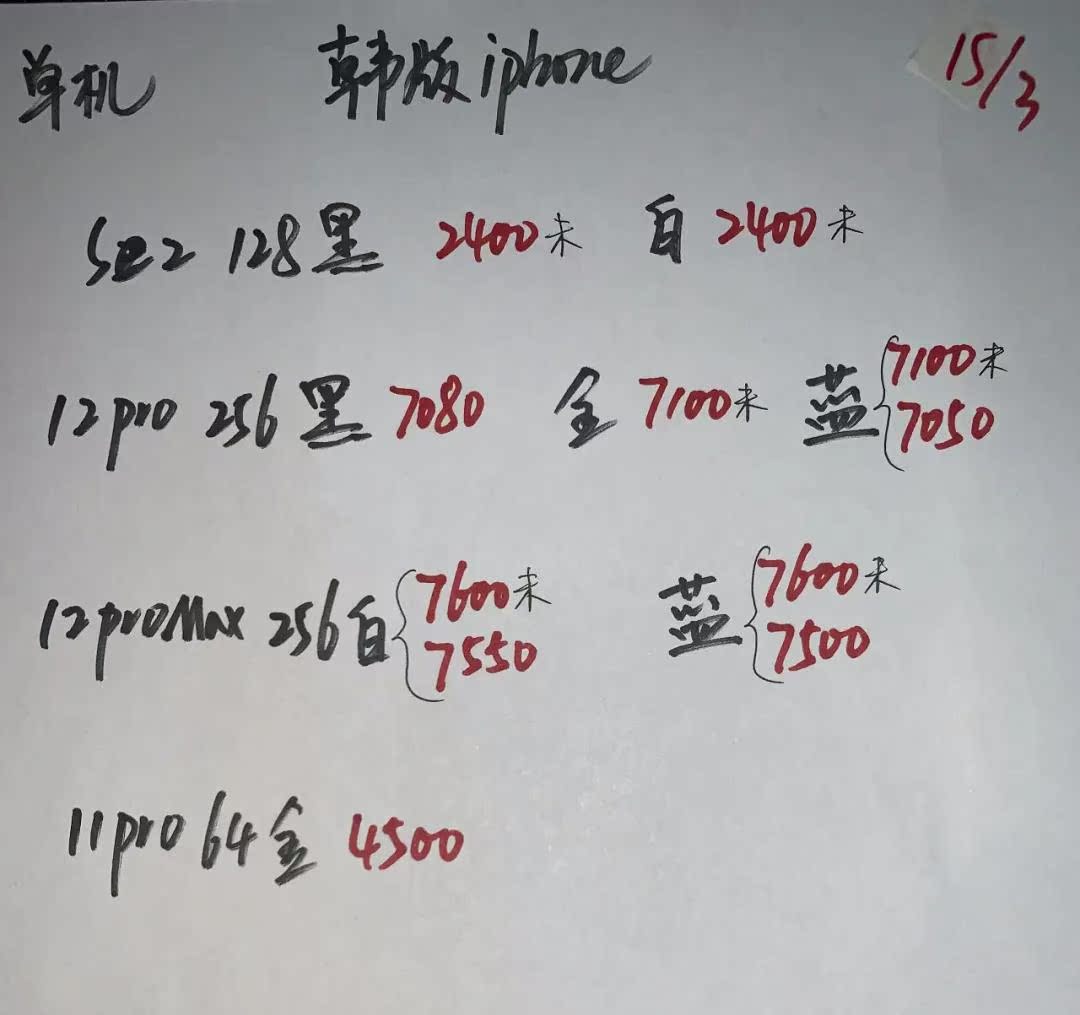 单机 韩版iphone 15/3
Se2 128黑 2400未 白 2400未
12pro 256黑 7080 金 7100未 蓝 7100未
7050
12proMax 256白 7600未 蓝 7600未
7550 7500
11pro 64金 4500